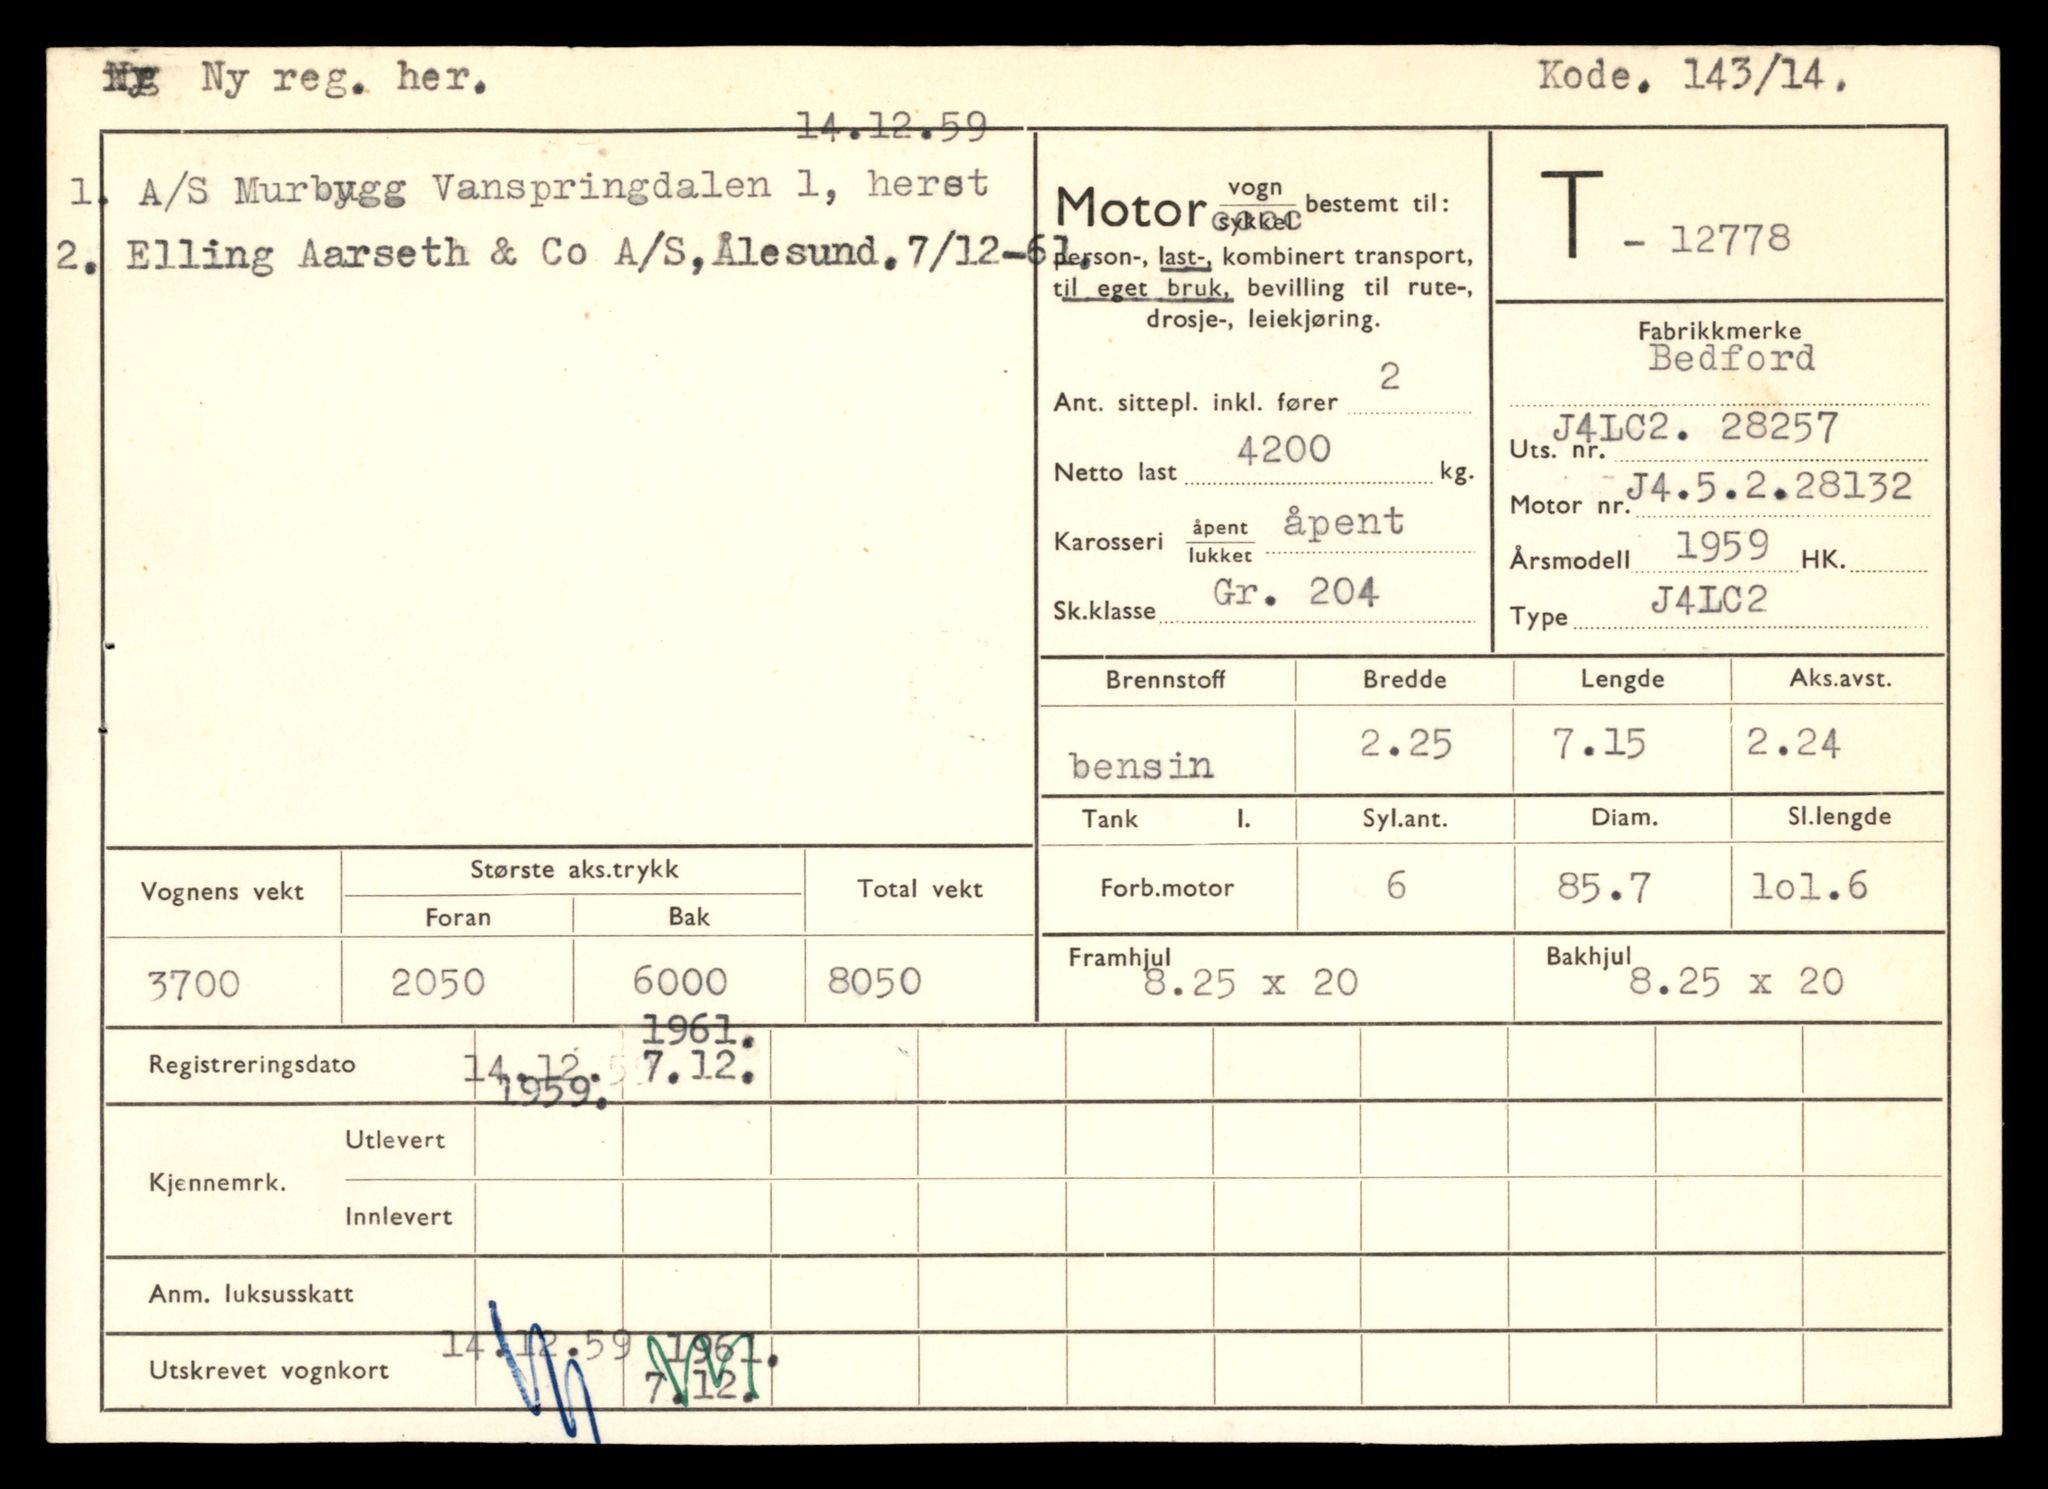 Ny reg. her.
Kode. 143/14.
14.12.59
1. A/S Murbygg Vanspringdalen 1, herst
2. Elling Aarseth & Co A/S, Ålesund. 7/12-61.
Motor vogn bestemt til:
sykkel
person-, last-, kombinert transport,
til eget bruk, bevilling til rute-,
drosje-, leiekjøring.
Ant. sittepl. inkl. fører 2
Netto last 4200 kg.
Karosseri åpent åpent
lukket
Sk.klasse Gr. 204
T - 12778
Fabrikkmerke
Bedford
Uts. nr. J4LC2. 28257
Motor nr. J4.5.2.28132
Årsmodell 1959 HK.
Type J4LC2
Brennstoff Bredde Lengde Aks.avst.
bensin 2.25 7.15 2.24
Tank l. Syl.ant. Diam. Sl.lengde
Forb.motor 6 85.7 lol.6
Framhjul 8.25 x 20 Bakhjul 8.25 x 20
Vognens vekt Største aks.trykk Total vekt
Foran Bak
3700 2050 6000 8050
1961.
Registreringsdato 14.12.59 7.12.
1959.
Kjennemrk. Utlevert
Innlevert
Anm. luksusskatt
14.12.59 1961.
Utskrevet vognkort 7.12.